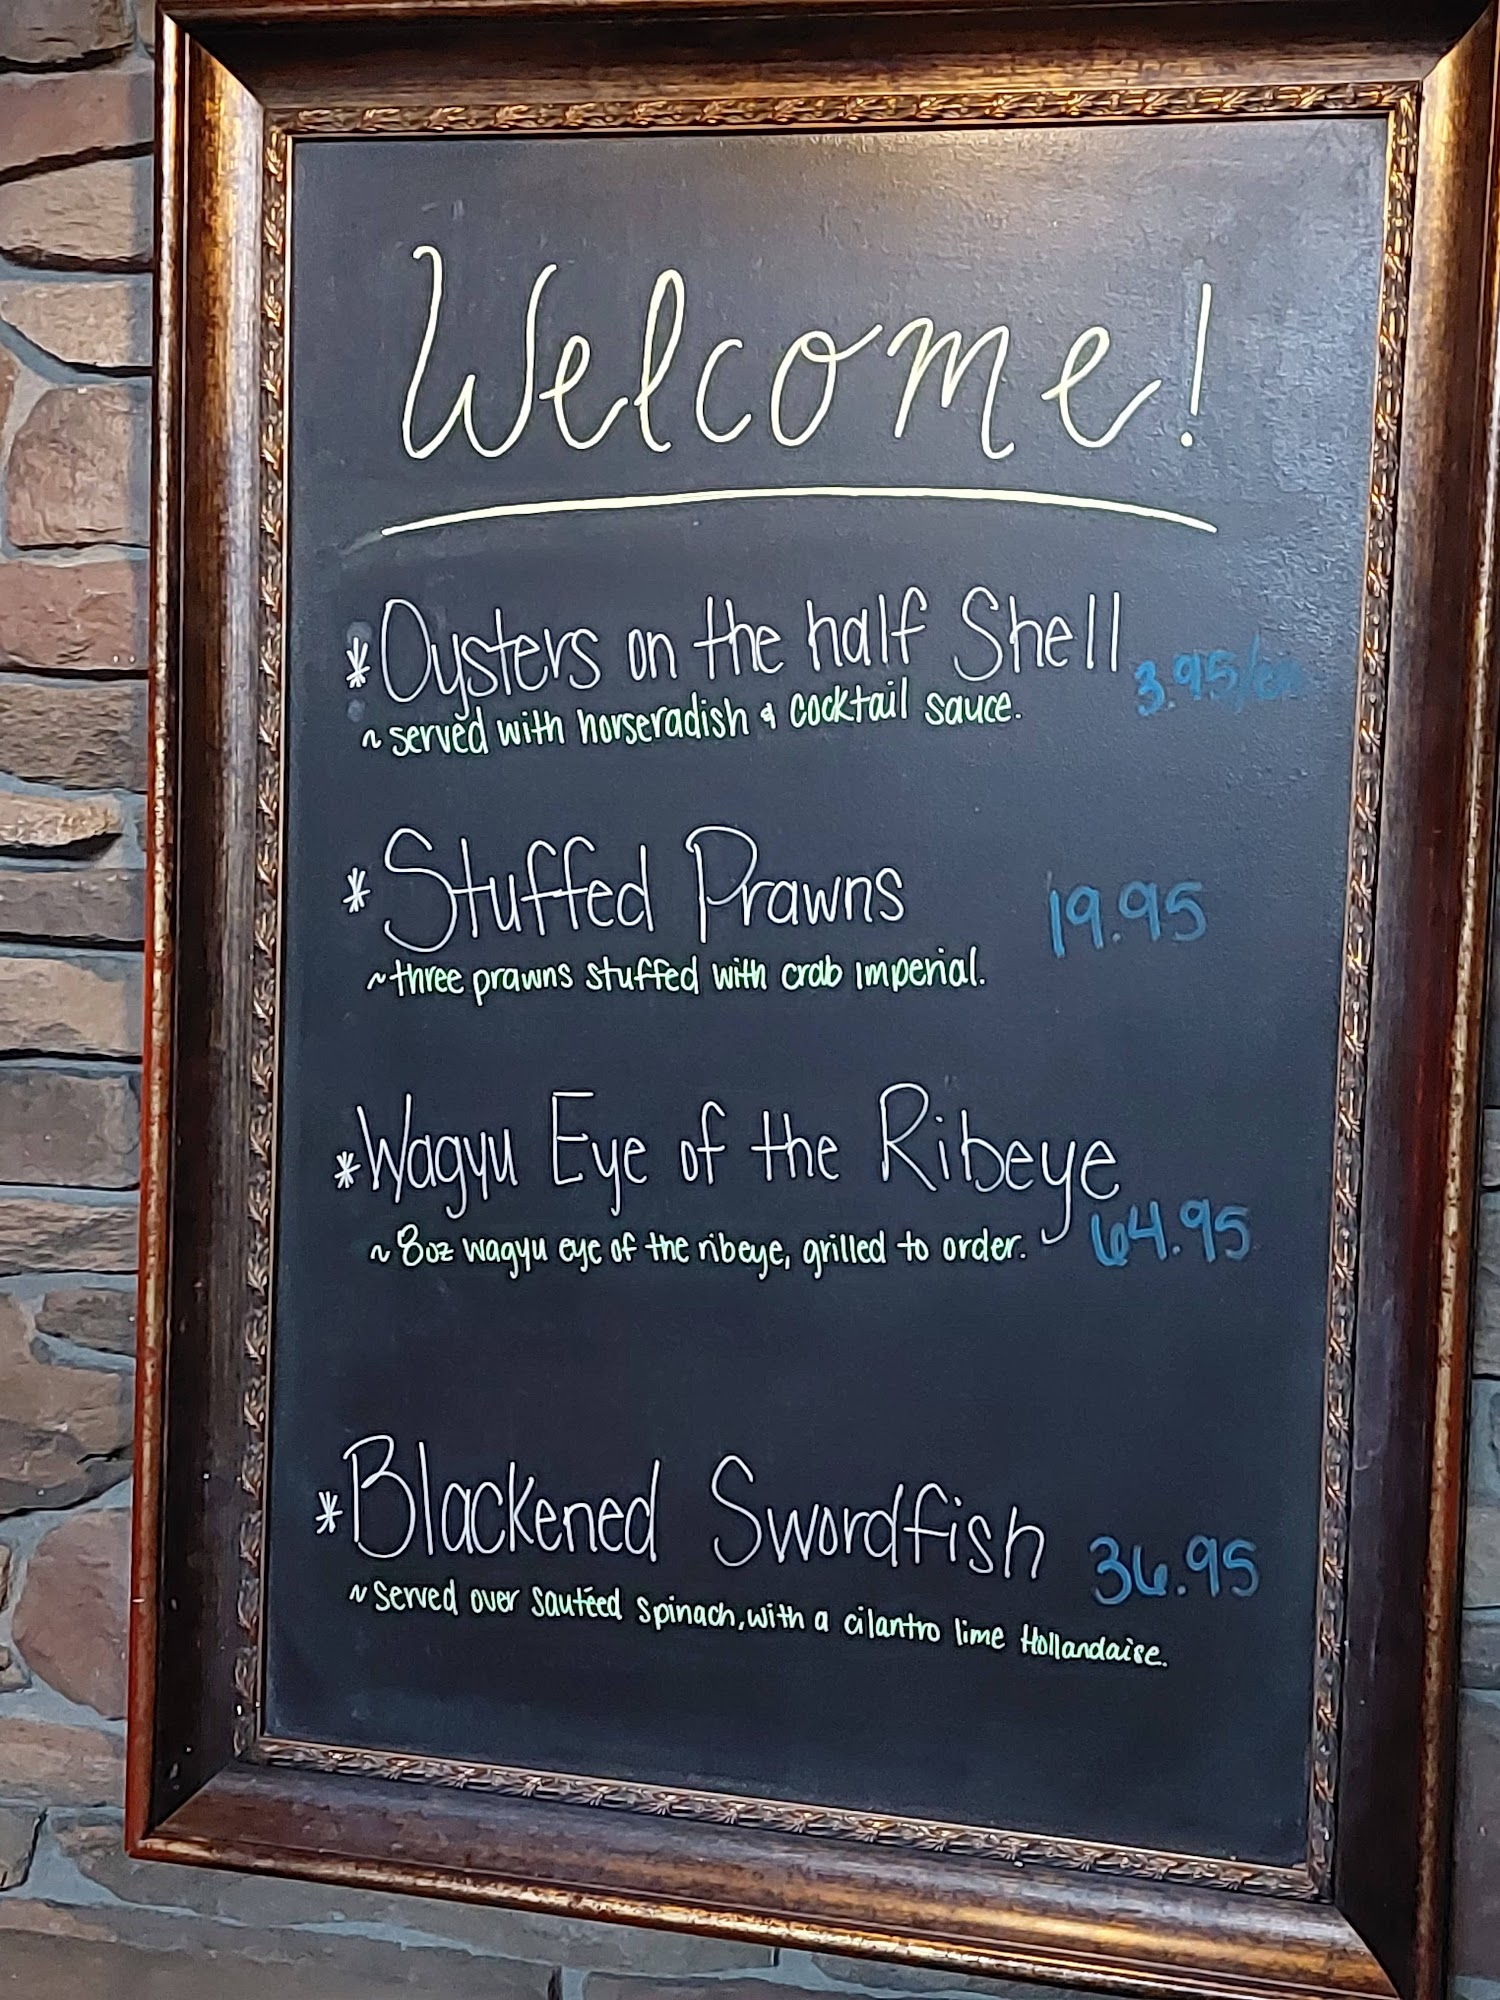 Welcome!
*Oysters on the half Shell 3.95/ea
~ served with horseradish & cocktail sauce.
*Stuffed Prawns 19.95
~three prawns stuffed with crab Imperial.
*Wagyu Eye of the Ribeye
~ 8oz wagyu eye of the ribeye, grilled to order. 64.95
*Blackened Swordfish 36.95
~ Served over sautéed spinach, with a cilantro lime Hollandaise.